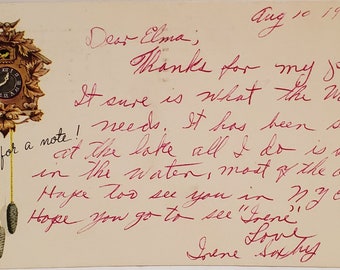 Aug 10 19
Dear Elma,
Thanks for my
It sure is what the
needs. It has been
for a note!
at the lake all I do is
in the water, most of the
Hope too see you in N.Y.
Hope you go to see "Irene"
Love
Irene